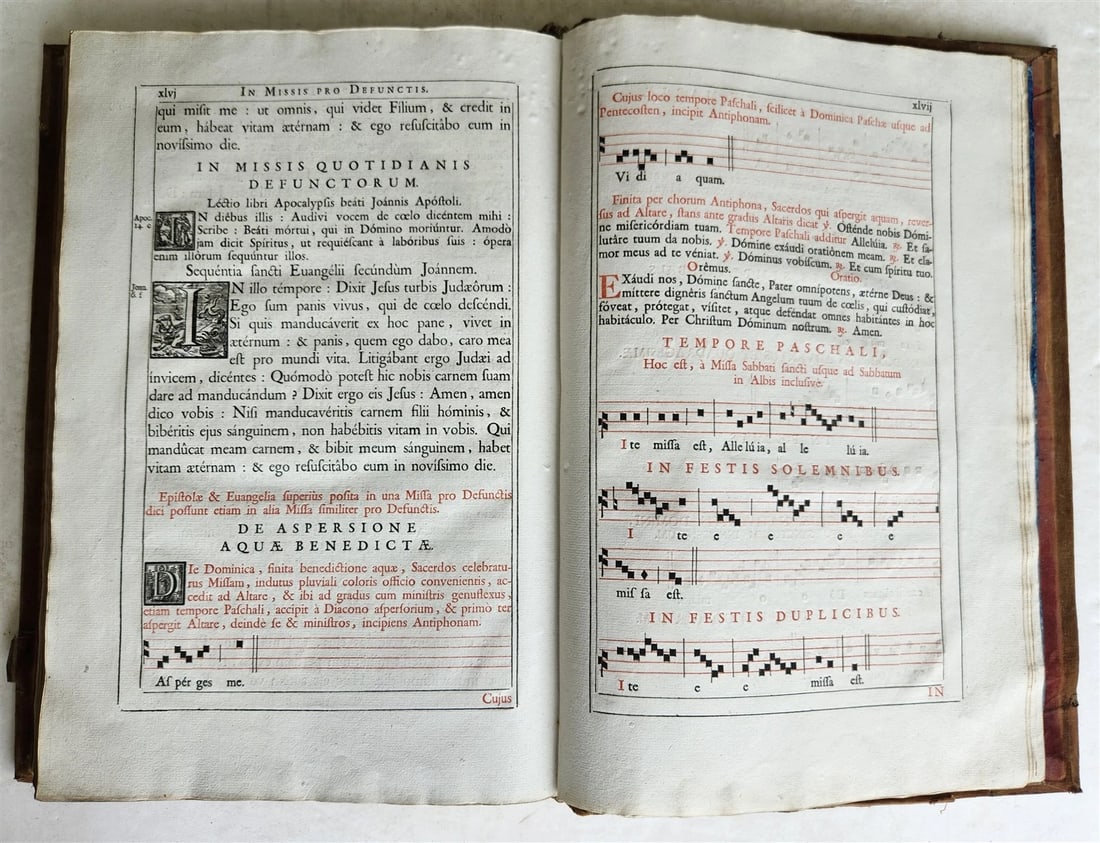 xlvj
IN MISSIS PRO DEFUNCTIS.
qui misit me : ut omnis, qui videt Filium, & credit in
eum, hábeat vitam ætérnam : & ego resuscitábo eum in
novíssimo die.
IN MISSIS QUOTIDIANIS
DEFUNCTORUM.
Léctio libri Apocalypsis beáti Joánnis Apóstoli.
Apoc.
14. c
IN diébus illis : Audivi vocem de cœlo dicéntem mihi :
Scribe : Beáti mórtui, qui in Dómino moriúntur. Amodò
jam dicit Spíritus, ut requiéscant à labóribus suis : ópera
enim illórum sequúntur illos.
Sequéntia sancti Euangélii secúndùm Joánnem.
Joan.
6. f
IN illo témpore : Dixit Jesus turbis Judæórum :
Ego sum panis vivus, qui de cœlo descéndi.
Si quis manducáverit ex hoc pane, vivet in
ætérnum : & panis, quem ego dabo, caro mea
est pro mundi vita. Litigábant ergo Judæi ad
ínvicem, dicéntes : Quómodò potest hic nobis carnem suam
dare ad manducándum ? Dixit ergo eis Jesus : Amen, amen
dico vobis : Nisi manducavéritis carnem filii hóminis, &
bibéritis ejus sánguinem, non habébitis vitam in vobis. Qui
mandúcat meam carnem, & bibit meum sánguinem, habet
vitam ætérnam : & ego resuscitábo eum in novíssimo die.
Epistolæ & Euangelia superiùs posita in una Missa pro Defunctis
dici possunt etiam in alia Missa similiter pro Defunctis.
DE ASPERSIONE
AQUÆ BENEDICTÆ.
DIe Dominica, finita benedictione aquæ, Sacerdos celebratu-
rus Missam, indutus pluviali coloris officio convenientis, ac-
cedit ad Altare, & ibi ad gradus cum ministris genuflexus,
etiam tempore Paschali, accipit à Diacono aspersorium, & primò ter
aspergit Altare, deindè se & ministros, incipiens Antiphonam.
As pér ges me.
Cujus
xlvij
Cujus loco tempore Paschali, scilicet à Dominica Paschæ usque ad
Pentecosten, incipit Antiphonam.
Vi di a quam.
Finita per chorum Antiphona, Sacerdos qui aspergit aquam, rever-
sus ad Altare, stans ante gradus Altaris dicat ℣. Osténde nobis Dómi-
ne misericórdiam tuam. Tempore Paschali additur Allelúia. ℟. Et sa-
lutáre tuum da nobis. ℣. Dómine exáudi oratiónem meam. ℟. Et cla-
mor meus ad te véniat. ℣. Dóminus vobíscum. ℟. Et cum spíritu tuo.
Orémus. Oratio.
EXáudi nos, Dómine sancte, Pater omnípotens, ætérne Deus : &
emíttere dignéris sanctum Angelum tuum de cœlis, qui custódiat,
fóveat, prótegat, vísitet, atque deféndat omnes habitántes in hoc
habitáculo. Per Christum Dóminum nostrum. ℟. Amen.
TEMPORE PASCHALI,
Hoc est, à Missa Sabbati sancti usque ad Sabbatum
in Albis inclusivè.
I te missa est, Alle lú ia, al le lú ia.
IN FESTIS SOLEMNIBUS.
I te e e e e
mis sa est.
IN FESTIS DUPLICIBUS.
I te e e missa est.
IN